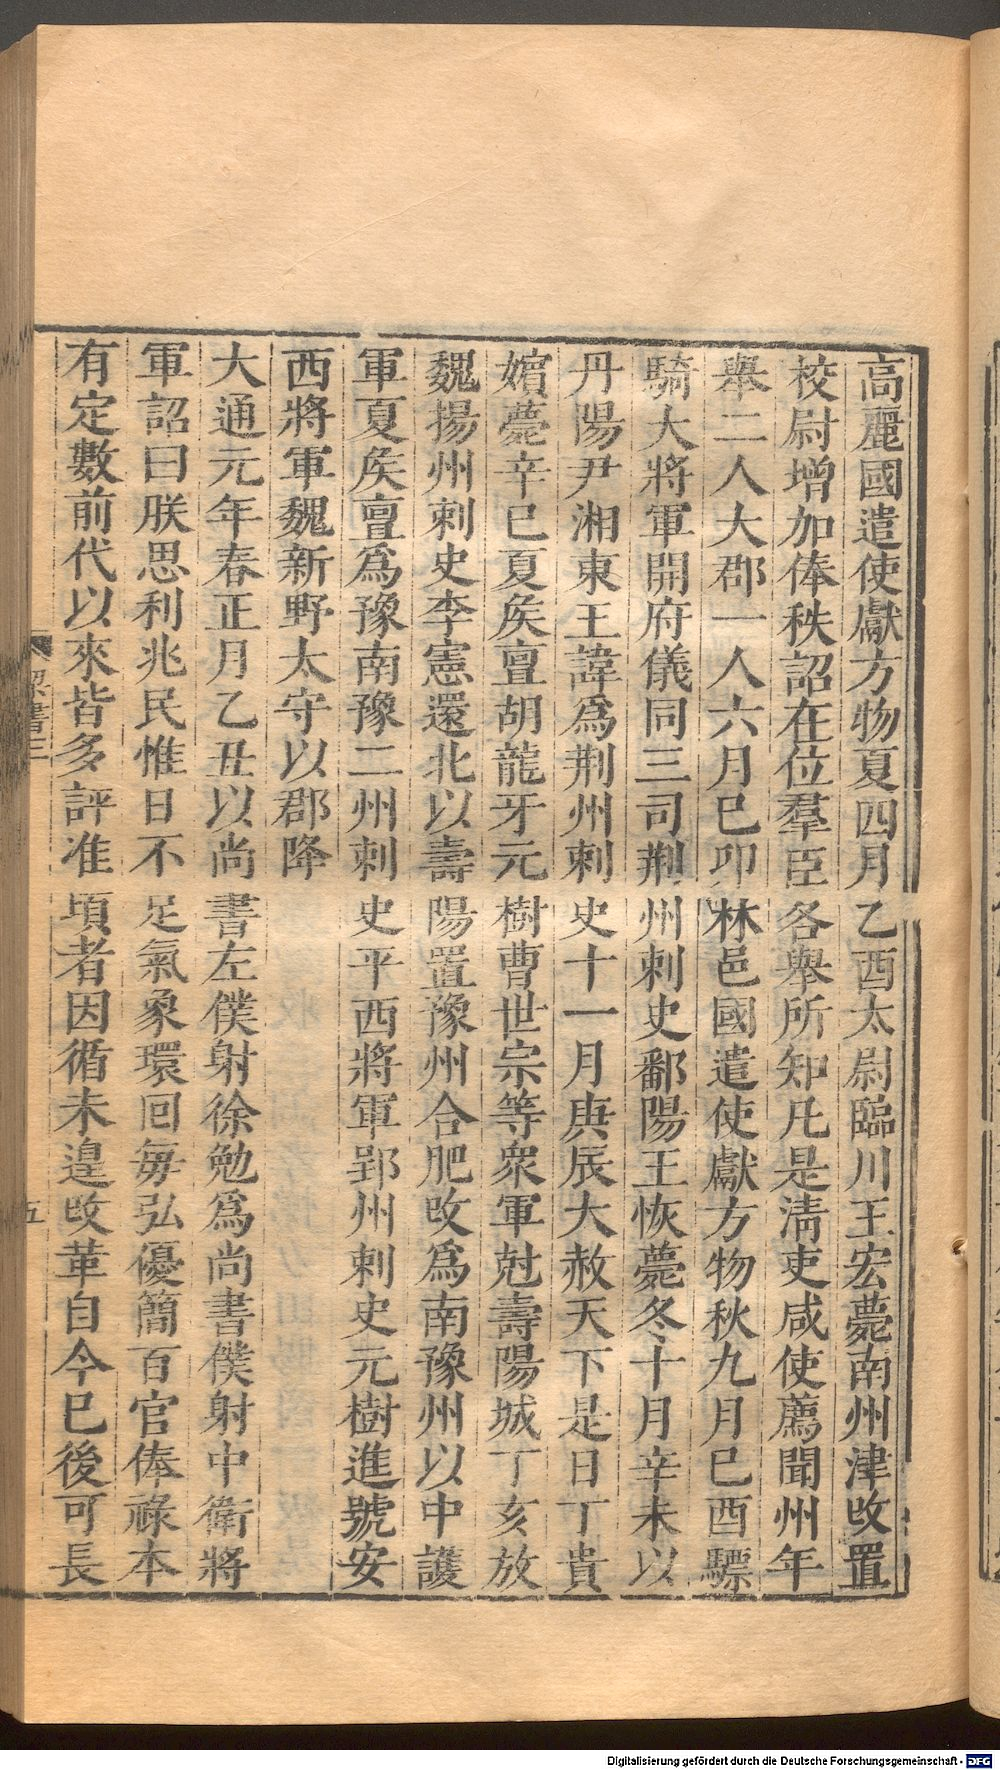 高麗國遣使獻方物夏四月乙酉太尉臨川王宏薨南州津改置
校尉增加俸秩詔在位羣臣各舉所知凡是淸吏咸使薦聞州年
舉二人大郡一人六月巳卯林邑國遣使獻方物秋九月巳酉驃
騎大將軍開府儀同三司荆州刺史鄱陽王恢薨冬十月辛未以
丹陽尹湘東王諱爲荆州刺史十一月庚辰大赦天下是日丁貴
嬪薨辛巳夏矦亶胡龍牙元樹曹世宗等衆軍尅壽陽城丁亥放
魏揚州刺史李憲還北以壽陽置豫州合肥改爲南豫州以中護
軍夏矦亶爲豫南豫二州刺史平西將軍郢州刺史元樹進號安
西將軍魏新野太守以郡降
大通元年春正月乙丑以尚書左僕射徐勉爲尚書僕射中衛將
軍詔曰朕思利兆民惟日不足氣象環回毎弘優簡百官俸祿本
有定數前代以來皆多評准頃者因循未遑改革自今巳後可長
梁書三
五
Digitalisierung gefördert durch die Deutsche Forschungsgemeinschaft - DFG